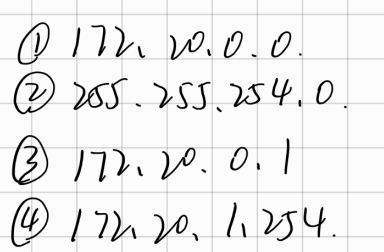 ① 172、20.0.0.
② 255.255.254.0.
③ 172、20.0.1
④ 172、20、1、254.